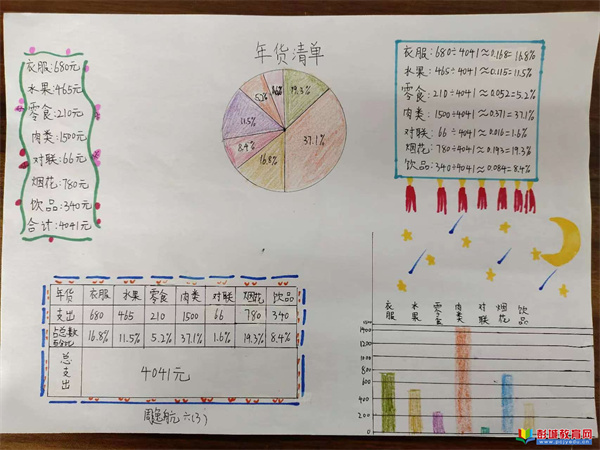 年货清单
衣服:680元
水果:465元
零食:210元
肉类:1500元
对联:66元
烟花:780元
饮品:340元
合计:4041元
19.3%
37.1%
16.8%
8.4%
11.5%
5.2%
1.6%
衣服:680÷4041≈0.168=16.8%
水果:465÷4041≈0.115=11.5%
零食:210÷4041≈0.052=5.2%
肉类:1500÷4041≈0.371=37.1%
对联:66÷4041≈0.016=1.6%
烟花:780÷4041≈0.193=19.3%
饮品:340÷4041≈0.084=8.4%
年货 衣服 水果 零食 肉类 对联 烟花 饮品
支出 680 465 210 1500 66 780 340
占总数百分比 16.8% 11.5% 5.2% 37.1% 1.6% 19.3% 8.4%
总支出 4041元
航 六(3)
衣服 水果 零食 肉类 对联 烟花 饮品
1400
1200
1000
800
600
400
200
0
彭城教育网
www.pcjyw.com